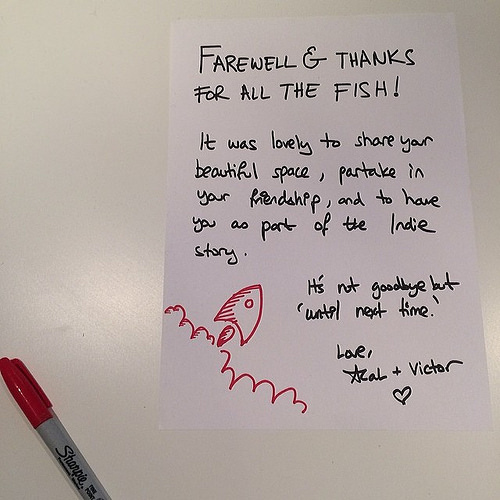 FAREWELL & THANKS
FOR ALL THE FISH!
It was lovely to share your
beautiful space, partake in
your friendship, and to have
you as part of the Indie
story.
It's not goodbye but
'until next time.'
Love,
+ Victor
Sharpie
FINE POINT